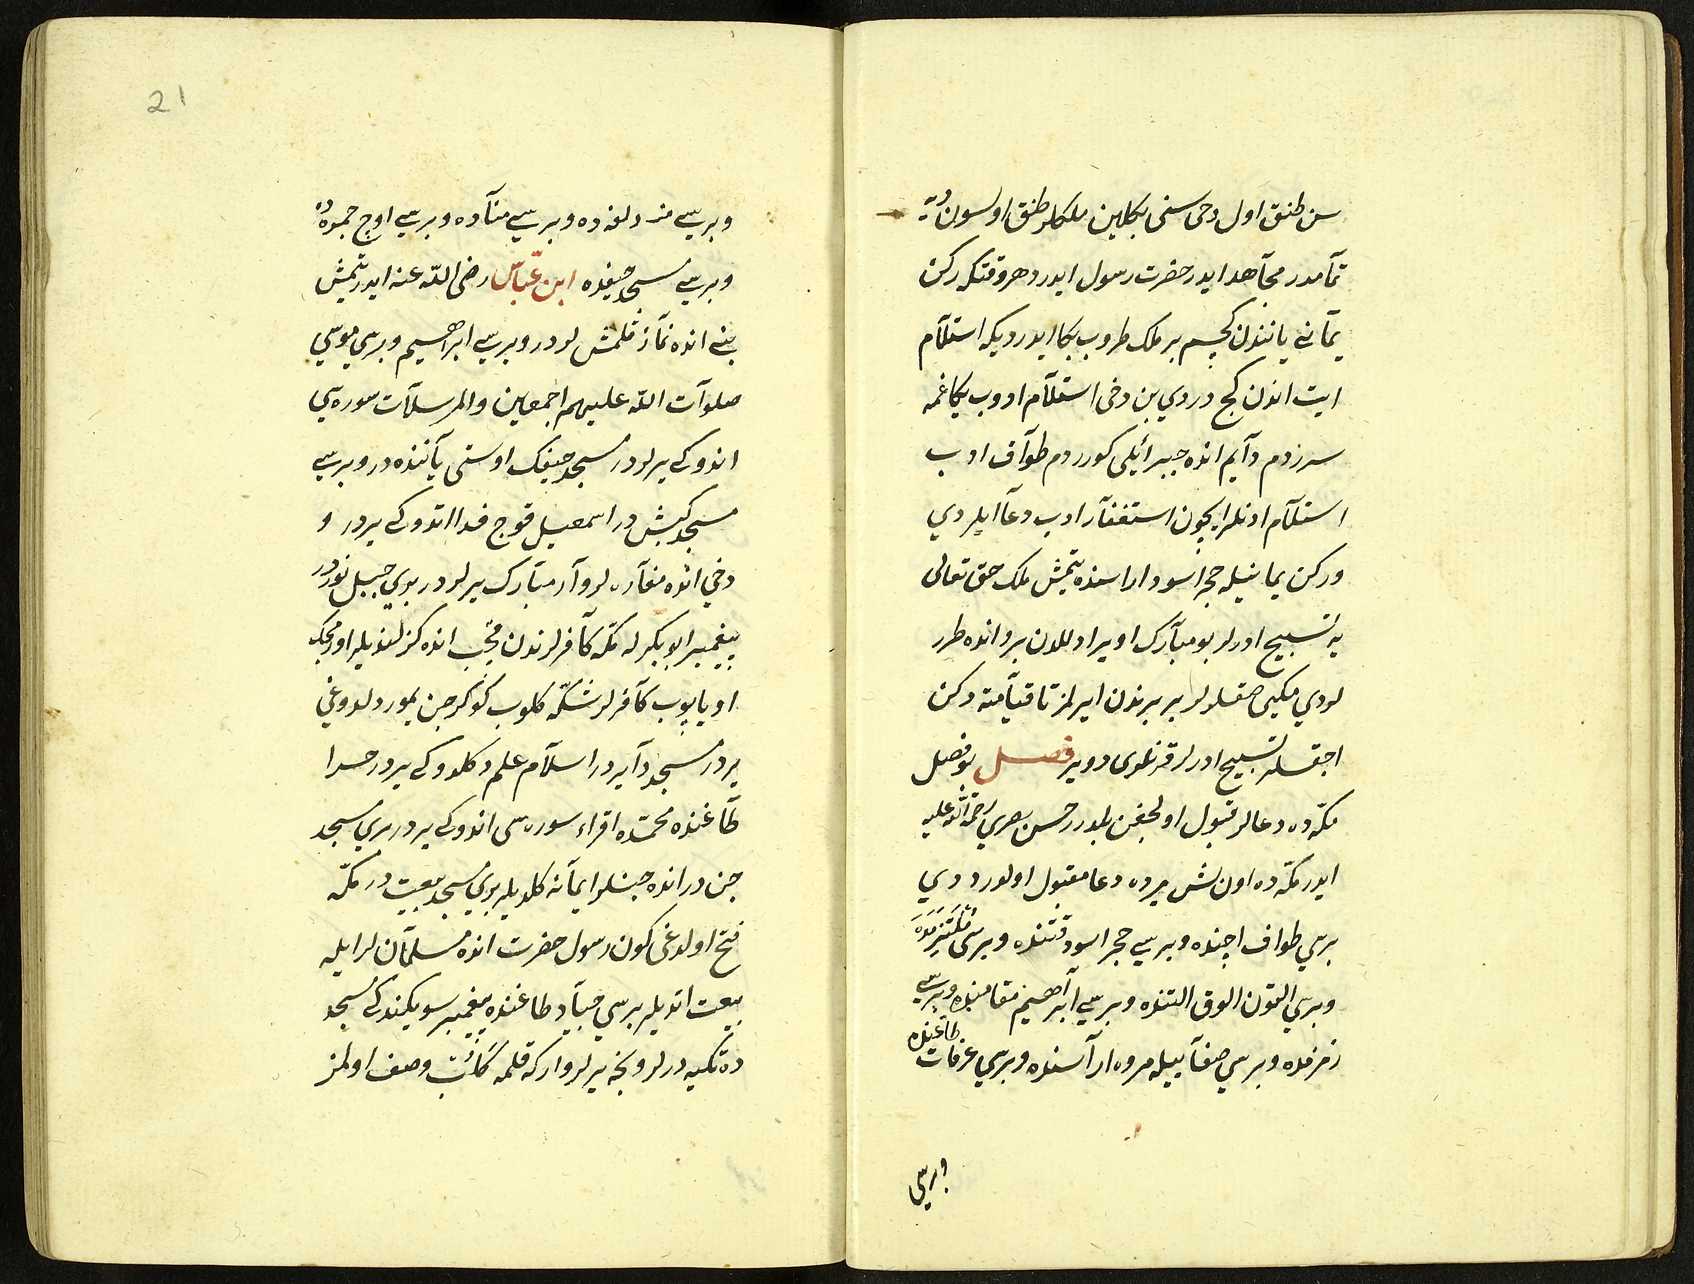 سن طنق اول دخی سنی بکلین ملکلر طنق اولسون دیه
تمآمدر مجآهد ایدر حضرت رسول ایدردی هر وقتکه رکن
یمآنے یانندن کچسم بر ملک طروب بکا ایدردیکه استلآم
ایت اندن کچ دردی بن دخی استلآم ادوب بکا غمه
سرزدم دآیم انده جبرائلی کورردم طوآف ادب
استلآم ادنلر ایچون استغفآر ادب دعآ ایلردی
ورکن یمانیله حجر اسود اراسنده یتمش ملک حق تعالی
یه تسبیح ادرلر بو مبآرک اویر ادللدن برو انده طرر
لردی مکین صقللرلر بر برندن ایرلمز تا قیآمته دکن
اجقله تسبیح ادرلر قزغلوی دویر فصل بو فصل
مکه ده دعالر قبول اولجغن بلدرر حسن بصری رحمة الله علیه
ایدر مکه ده اون بش یرده دعا مقبول اولور ددی
بریی طواف اچنده وبریسے حجر اسود قتنده وبریسی ملتزمده
وبریسی التون الوق التنده وبریسے ابرآهیم مقامنده وبریسے
زمزمده وبریسی صفآییله مروه ارآسنده وبریسی عرفات طاغنده
وبریسی
21
وبریسے مزدلفه ده وبریسے منآده وبریسے اوچ جمره ده
وبریسے مسجد حیفده ابن عبّاس رضی الله عنه ایدر یتمش
بنے انده نمآز قلمش لردر وبریسے ابراهیم وبریسی موسی
صلوآت الله علیهم اجمعین والمرسلآت سوره سی
اندوکی یرلردر مسجد حیفک اوستی یآننده در وبریسے
مسجد کبش در اسمعیل قوچ فدا اتدوکی یردر و
دخی انده مغآره لر وآر مبآرک یرلردر بوی جبل نوردر
پیغمبر ابو بکرله مکه کآفرلرندن قچب انده کزلندیلر اورمجک
او یاپوب کآفرلر شکه کلوب کوکرجن یمورداوغی
یردر مسجد دآیردر اسلآم علم دکلدوکی یردر حرا
طآغنده محمّده اقراء سوره سی اندوکی یردر بری مسجد
جن در انده جنیلر ایمآنه کلدیلر بوی مسجد بیعت در مکّه
فتح اولدغی کون رسول حضرت انده مسلمآنلر ایله
بیعت اتدیلر بریسی جیآد طاغنده پیغمبر سویکندکی مسجد
ده تکیه درلر ونجه یرلر وار که قلمه کآئب وصف اولمز